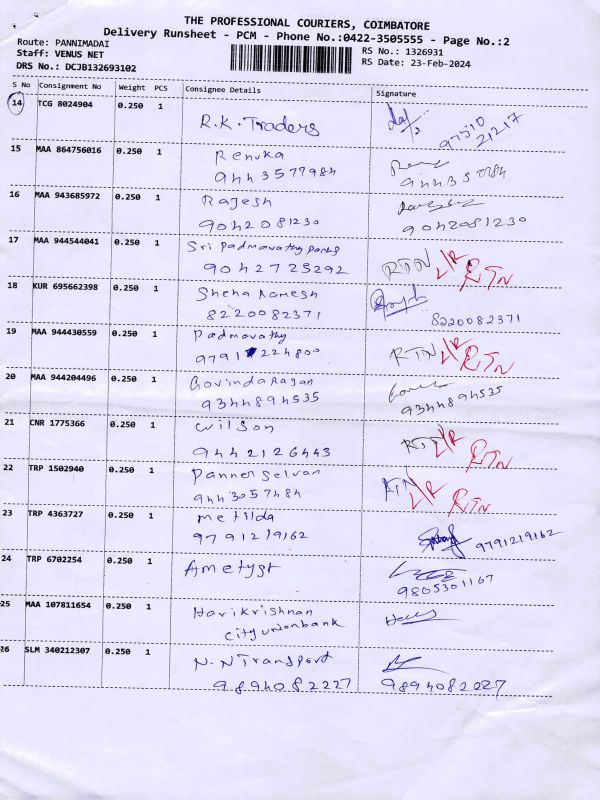 THE PROFESSIONAL COURIERS, COIMBATORE
Delivery Runsheet - PCM - Phone No.:0422-3505555 - Page No.:2
Route: PANNIMADAI
RS No.: 1326931
Staff: VENUS NET
RS Date: 23-Feb-2024
DRS No.: DCJB132693102
S No Consignment No Weight PCS Consignee Details Signature
14 TCG 8024904 0.250 1
R.K. Traders
97510
21217
15 MAA 864756016 0.250 1 Renuka
9443577984
16 MAA 943685972 0.250 1 Rajesh
9042081230 9042081230
17 MAA 944544041 0.250 1 Sri Padmavathy
9042725292 RTN L/R RTN
18 KUR 695662398 0.250 1 Sneha Ramesh
8220082371 8220082371
19 MAA 944430559 0.250 1 Padmavathy
9791 224800 RTN L/R RTN
20 MAA 944204496 0.250 1 Govinda Rajan
9344894535 9344894535
21 CNR 1775366 0.250 1 Wilson
9442126443 RTN L/R RTN
22 TRP 1502940 0.250 1 Panner Selvan
9443057484 RTN L/R RTN
23 TRP 4363727 0.250 1 Metilda
9791219162 9791219162
24 TRP 6702254 0.250 1 Ametyst
9805301167
25 MAA 107811654 0.250 1 Harikrishnan
city union bank
26 SLM 340212307 0.250 1 N.N Transport
9894082227 9894082027